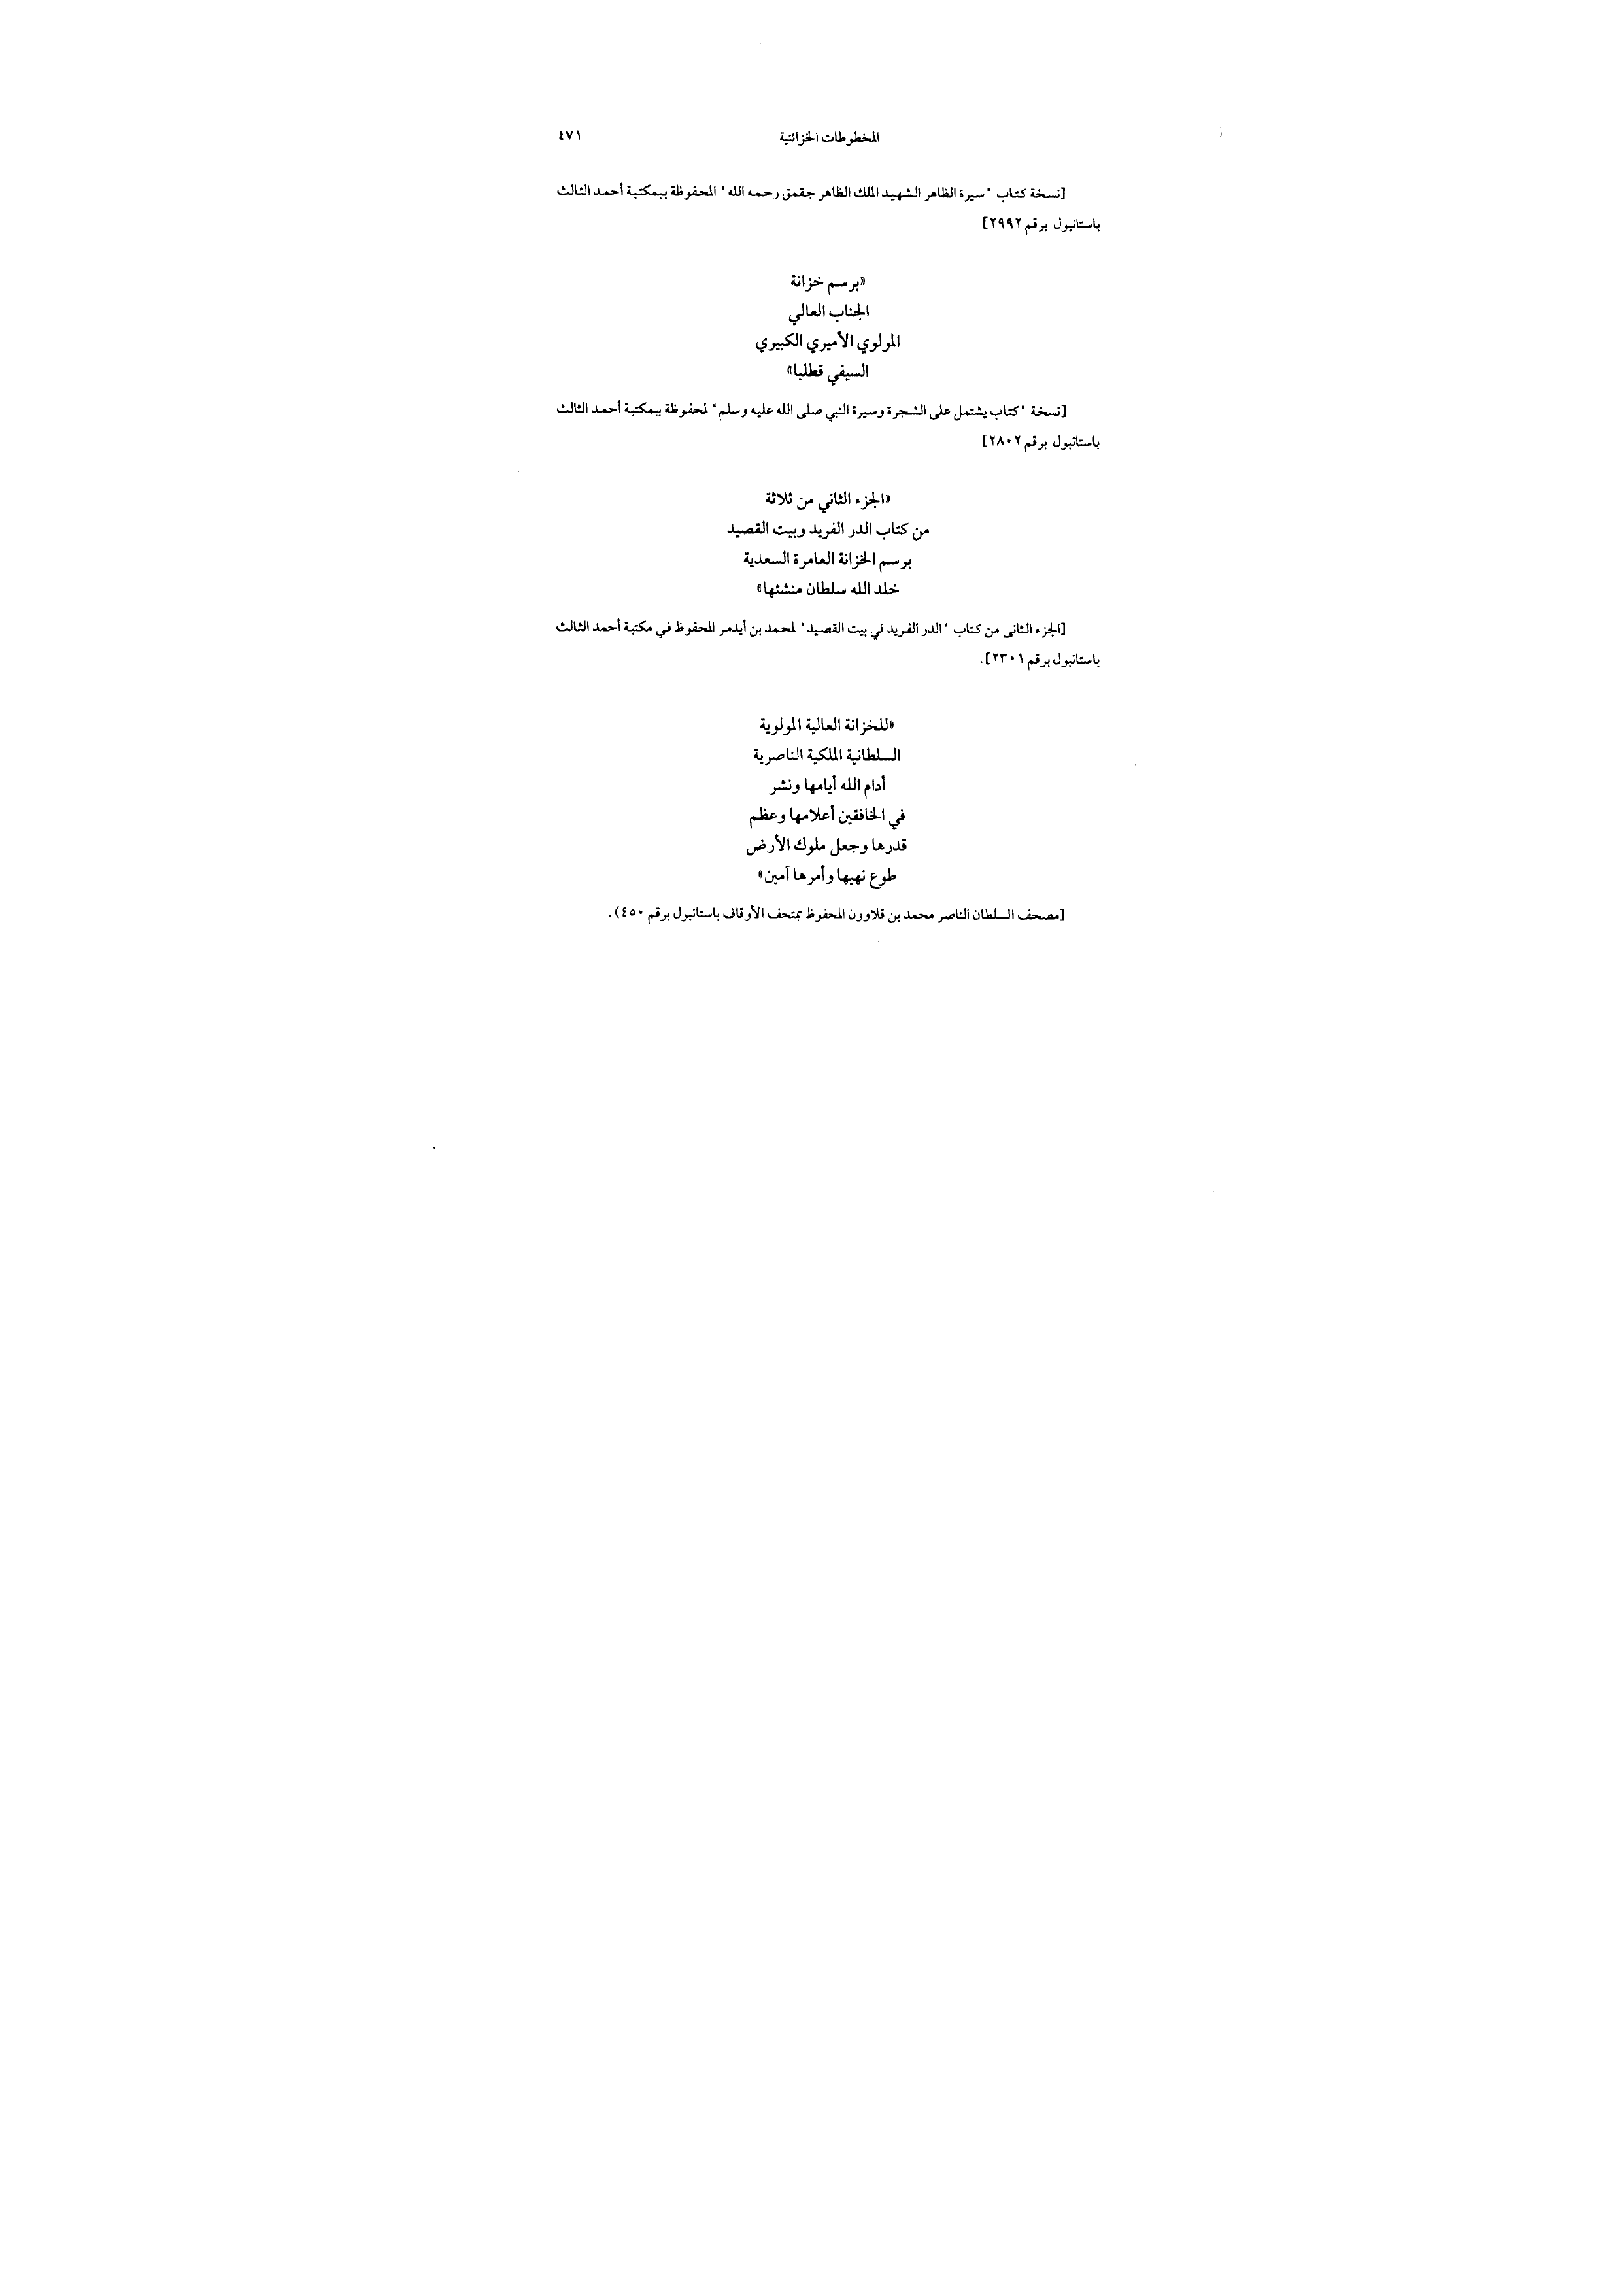 المخطوطات الخزائنية ٤٧١
[نسخة كتاب "سيرة الظاهر الشهيد الملك الظاهر جقمق رحمه الله" المحفوظة ببمكتبة أحمد الثالث
باستانبول برقم ٢٩٩٢]
«برسم خزانة
الجناب العالي
المولوي الأميري الكبيري
السيفي قطلبا»
[نسخة "كتاب يشتمل على الشجرة وسيرة النبي صلى الله عليه وسلم" لمحفوظة ببمكتبة أحمد الثالث
باستانبول برقم ٢٨٠٢]
«الجزء الثاني من ثلاثة
من كتاب الدر الفريد وبيت القصيد
برسم الخزانة العامرة السعدية
خلد الله سلطان منشئها»
[الجزء الثانى من كتاب "الدر الفريد في بيت القصيد" لمحمد بن أيدمر المحفوظ في مكتبة أحمد الثالث
باستانبول برقم ٢٣٠١].
«للخزانة العالية المولوية
السلطانية الملكية الناصرية
أدام الله أيامها ونشر
في الخافقين أعلامها وعظم
قدرها وجعل ملوك الأرض
طوع نهيها وأمرها آمين»
[مصحف السلطان الناصر محمد بن قلاوون المحفوظ بمتحف الأوقاف باستانبول برقم ٤٥٠).